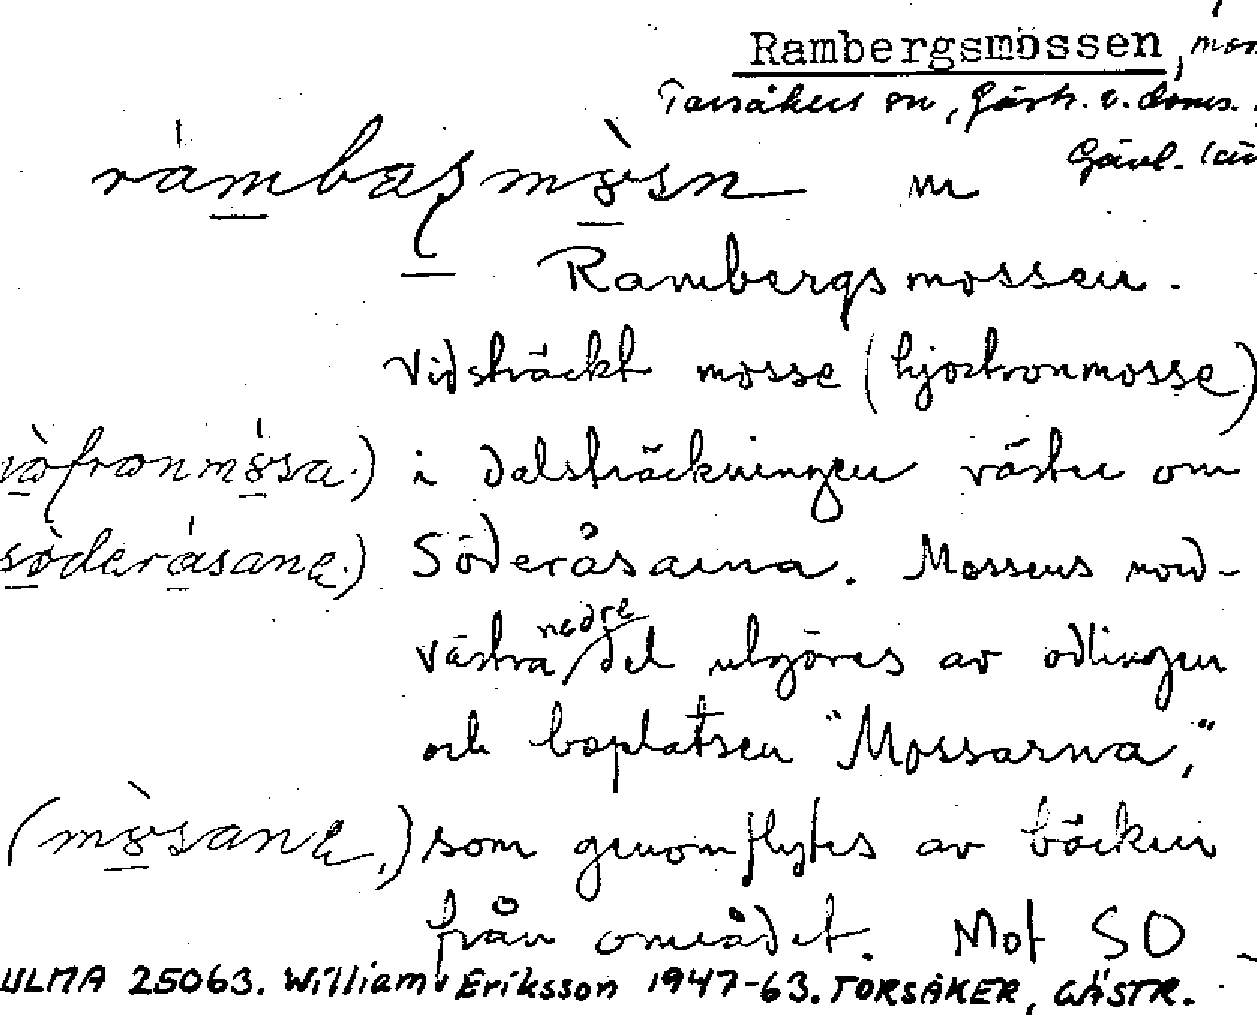 Rambergsmossen,
Torsåkers sn, Gästr. ö. doms.
Gävl. län
råmbaʂmòsn m
Rambergsmossen.
Vidsträckt mosse (hjortronmosse)
i dalsträckningen väster om
söderåsana.) Söderåsarna. Mossens nord-
västra nedre del utgöres av odlingen
och boplatsen "Mossarna,"
(mòsana.) som genomflytes av bäcken
från området. Mot SO
ULMA 25063. William Eriksson 1947-63. TORSÅKER, GÄSTR.